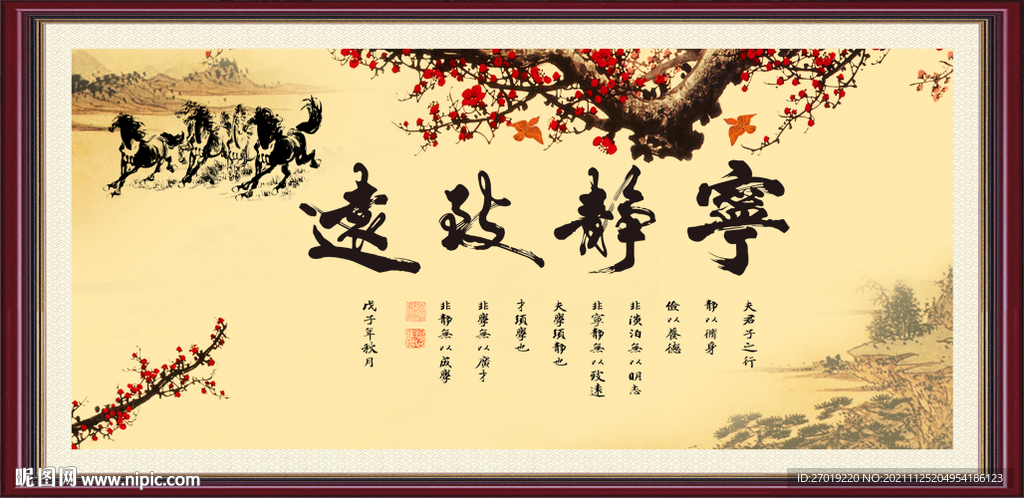 寧靜致遠
夫君子之行
靜以脩身
儉以養德
非淡泊無以明志
非寧靜無以致遠
夫學須靜也
才須學也
非學無以廣才
非靜無以成學
戊子年秋月
昵图网 www.nipic.com
ID:27019220 NO:20211125204954186123